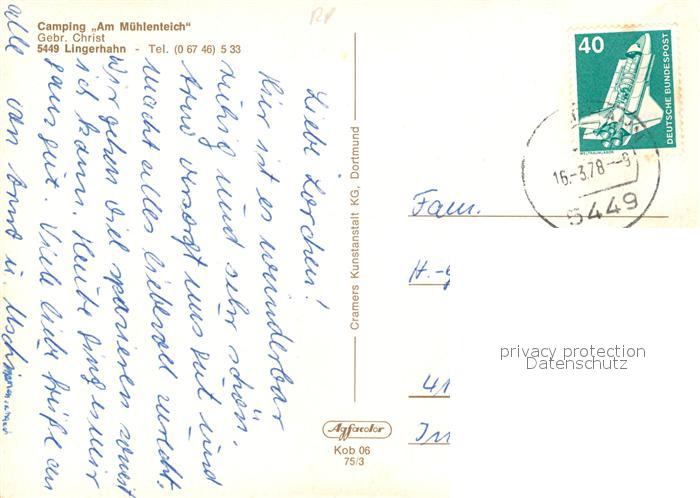 Camping „Am Mühlenteich"
Gebr. Christ
5449 Lingerhahn - Tel. (0 67 46) 5 33
Liebe Lorchen!
Hier ist es wunderbar
ruhig und sehr schön.
Arno versorgt uns gut und
macht alles liebevoll zurecht.
Wir gehen viel spazieren soweit
ich kann. Heute ging es mir
ganz gut. Viele liebe Grüße an
alle von Arno u. Uschi
Cramers Kunstanstalt KG, Dortmund
Agfacolor
Kob 06
75/3
40
DEUTSCHE BUNDESPOST
WELTRAUMLABOR
16.-3.78--9
5449
Fam.
H.-
41
privacy protection
Datenschutz